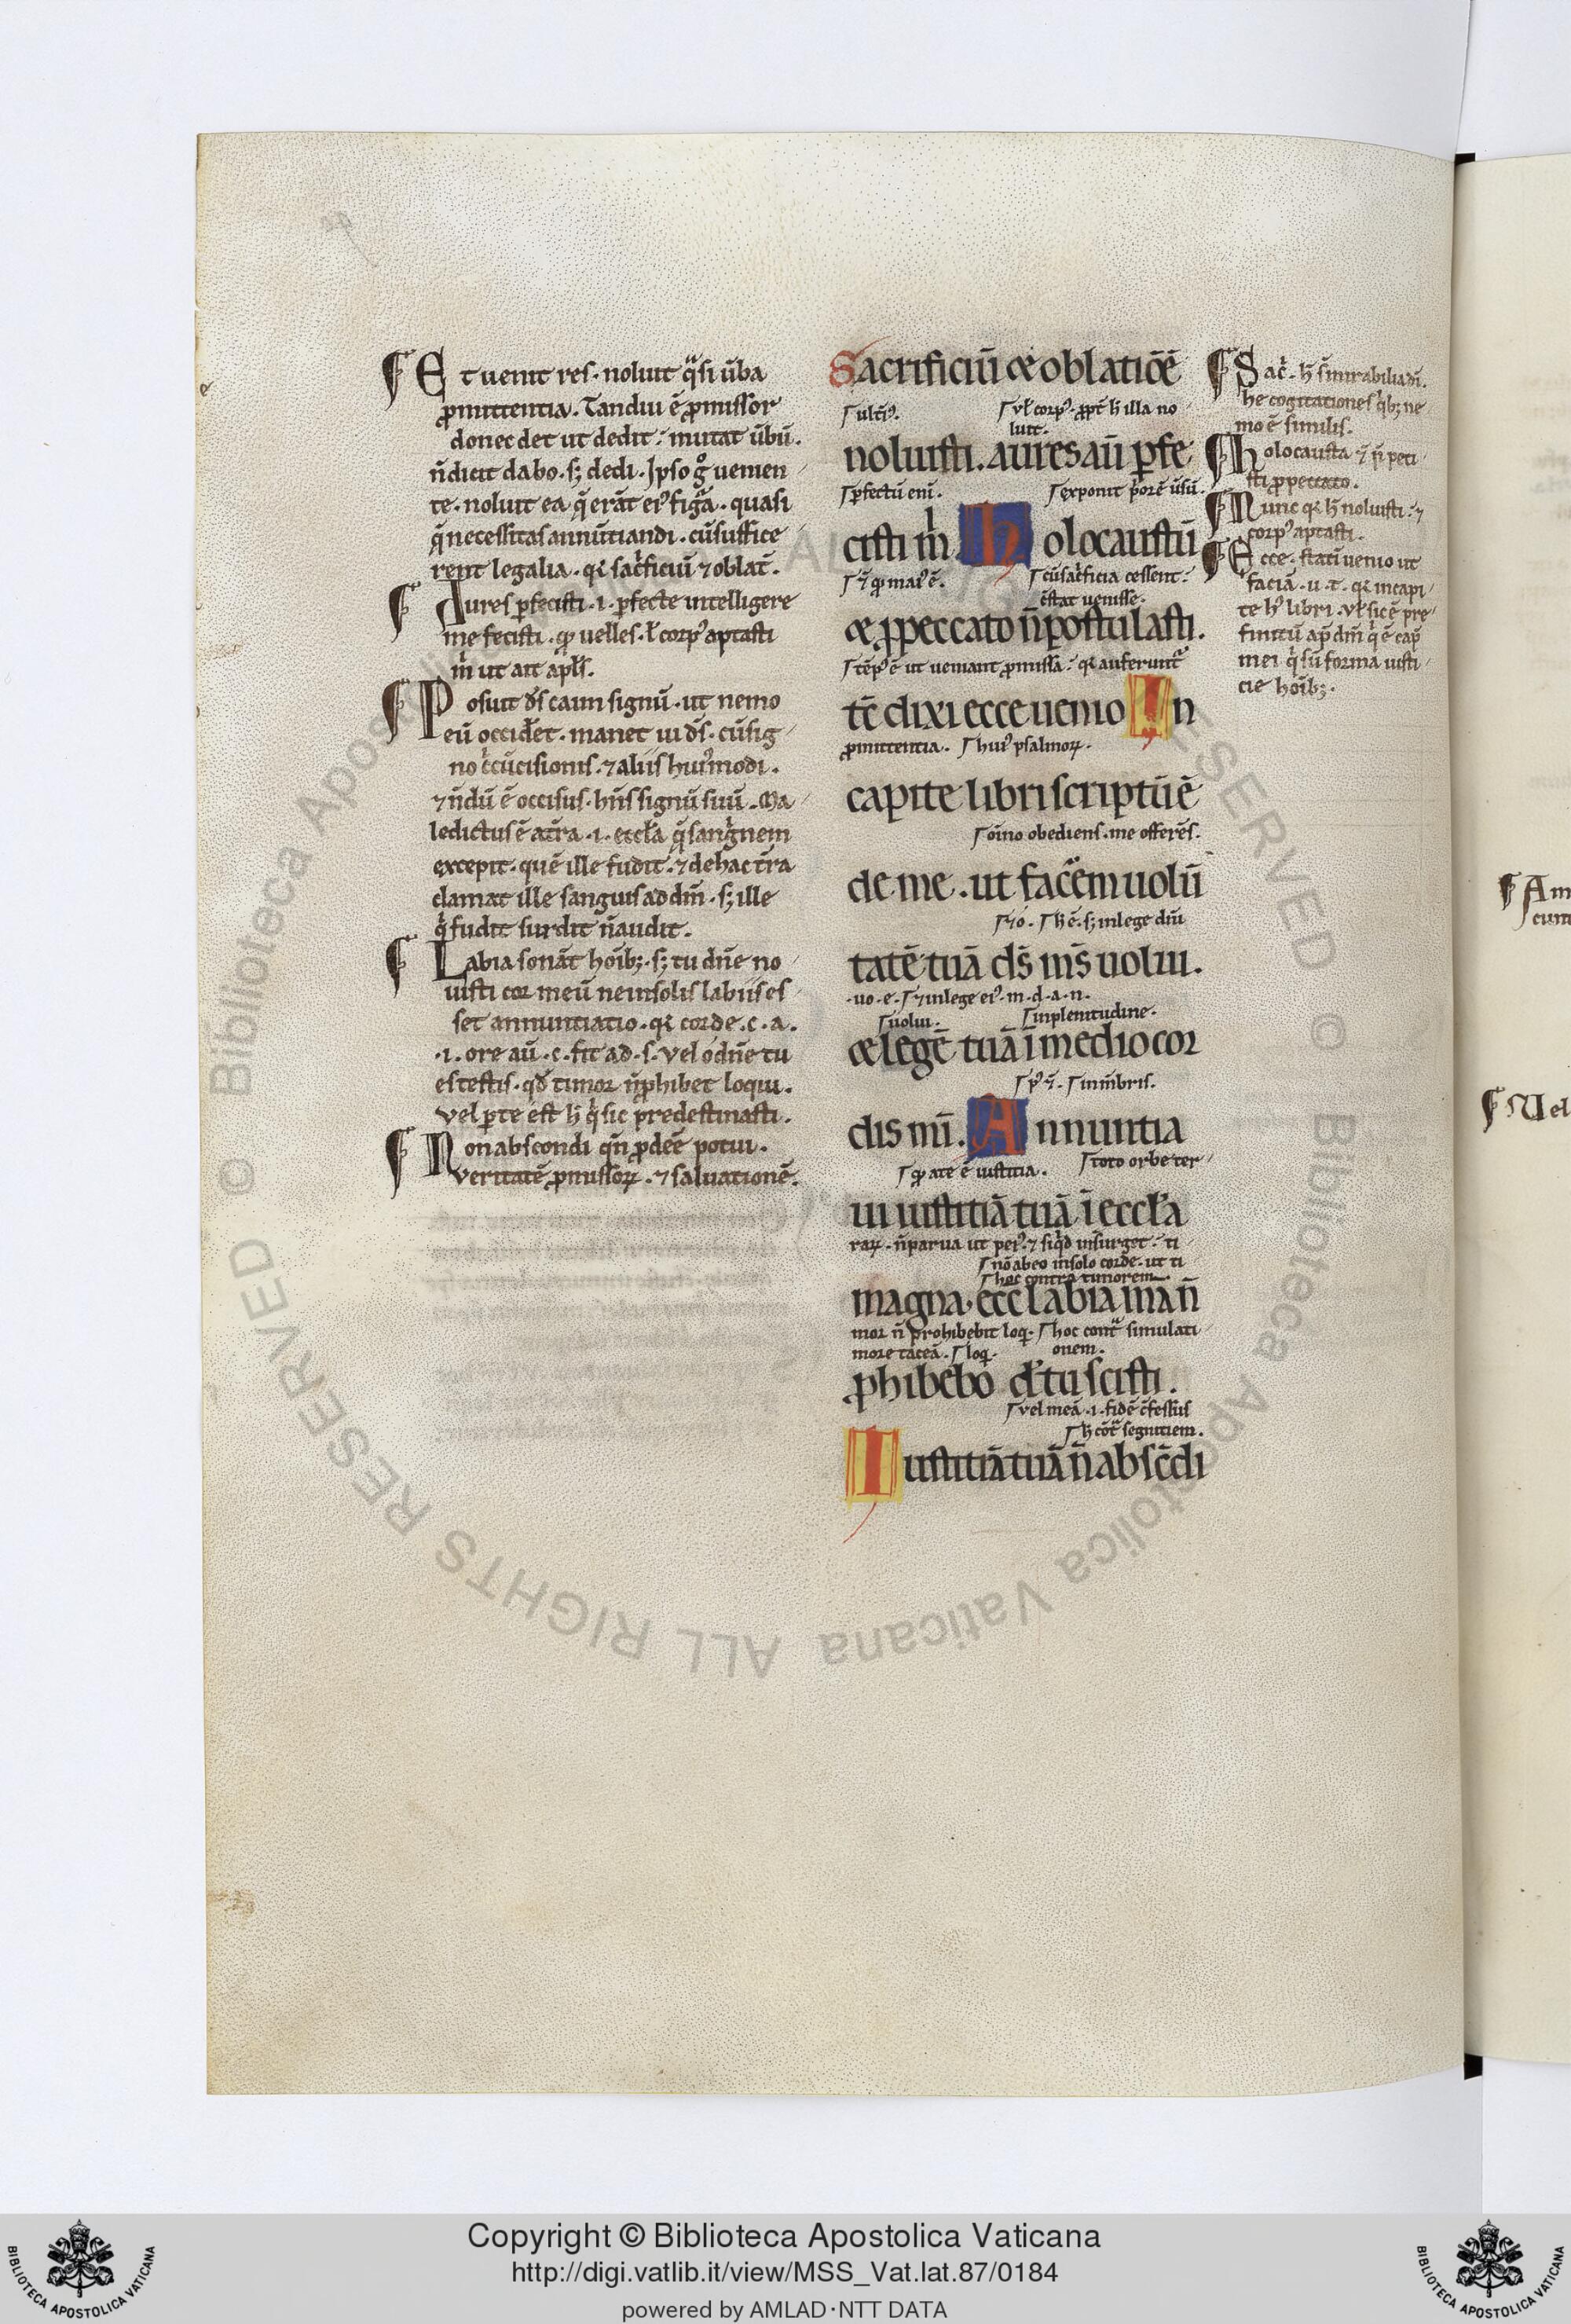 ¶ Et uenit res · noluit q̈si ūba
ꝓmittentia . Tandiu ē ꝓmissor
donec det ut dedit : mutat ūbū .
n̄ dicit dabo · sꝫ dedi . Ipso gͦ uenien
te · noluit ea q̄ erāt eiꝰ figᷓa · quasi
q̄ necessitas annūtiandi · cū suffice
rent legalia · qꝛ sacͥficiū ⁊ oblat̄ .
¶ Aures ꝑfecisti .i. ꝑfecte intelligere
me fecisti · qͦ uelles · ł corpꝰ aptasti
m̄ ut ait apl̄s .
¶ Posuit d̄s caim signū · ut nemo
eū occidēet · manet iu d̄s · cū sig
no c̄cūcisionis · ⁊ aliis huiꝰmodi .
⁊ n̄dū ē occisus · hn̄s signū suū . Ma
ledictus ē a t̄ra .i. eccła q̄ sangͥnem
excepit · quē ille fudit · ⁊ de hac t̄ra
clamat ille sanguis ad dm̄ · sꝫ ille
qͥ fudit surdit n̄ audit .
¶ Labia sonāt hoībꝫ · sꝫ tu dn̄e no
uisti cor meū ne in solis labiis es
set annuntiatio · qꝛ corde . c . a .
.i. ore aū . c . fit ad . s . vel o dn̄e tu
es testis · qd̄ timor n̄ ꝓhibet loqui .
vel ꝑ te est h̄ qͥ sic predestinasti .
¶ Non abscondi qn̄ ꝓdēe potui .
veritatē ꝓmissoꝝ · ⁊ saluationē .
Sacrificiū & oblatiōē
ultiꝰ . vł corpꝰ · ꝓpt̄ h̄ illa no
luit .
noluisti . aures aū ꝑfe
ꝑfectū eni . exponit pͥorē ūsū .
cisti m̄ . Holocaustū
cū sacͥficia cessent :
c̄stat uenisse .
& ꝓ peccato n̄ postulasti .
tēpꝰ ē ut ueniant ꝓmissa : qꝛ auferuntᷓ
tc̄ dixi ecce uenio In
ꝓmittentia . huiꝰ psalmoꝝ .
capite libri scriptū ē
oīno obediens . me offerēs .
de me . ut facēem uolū
⁊ iō . h̄ ē . sꝫ in lege dn̄i
tatē tuā ds̄ ms̄ uolui .
· uo · e · ⁊ in lege eiꝰ · m · d · a · n ·
uolui . in plenitudine .
& legē tuā ī medio cor
in m̄bris .
dis mī . Annuntia
ate ē iustitia . toto orbe ter
ui iustitiā tuā ī eccła
raꝝ · n̄ parua ut
nō abeo in solo corde · ut ti
hoc contra timorem
magna · ecc̄ labia m̄a n̄
mor n̄ prohibebit loq̄ . hoc contᷓ simulati
more taceā . loq̄ . onem .
ꝓhibebo dn̄e tu scisti .
vel meā .i. fidē c̄fessus
h̄ cōtᷓ segnitiem .
Iustitiā tuā n̄ absc̄di
¶ Sac̄ · h̄ sun mirabilia dī .
he cogitationes qͥbꝫ ne
mo ē similis .
¶ Holocausta ⁊ n̄ peti
sti ꝓ peccato .
¶ Nunc qꝛ h̄ noluisti : ⁊
corpꝰ aptasti .
¶ Ecce · statī uenio ut
faciā · u · t · qꝛ in capi
te hꝰ libri · vł sic ē pre
finitū ap̄ dm̄ qͥ ē cap̄
mei qͥ sū forma iusti
cie hoībꝫ .
¶ Am
cum
¶ Vel
© Biblioteca Apostolica Vaticana ALL RIGHTS RESERVED
Copyright © Biblioteca Apostolica Vaticana
http://digi.vatlib.it/view/MSS_Vat.lat.87/0184
powered by AMLAD·NTT DATA
BIBLIOTECA APOSTOLICA VATICANA
BIBLIOTECA APOSTOLICA VATICANA